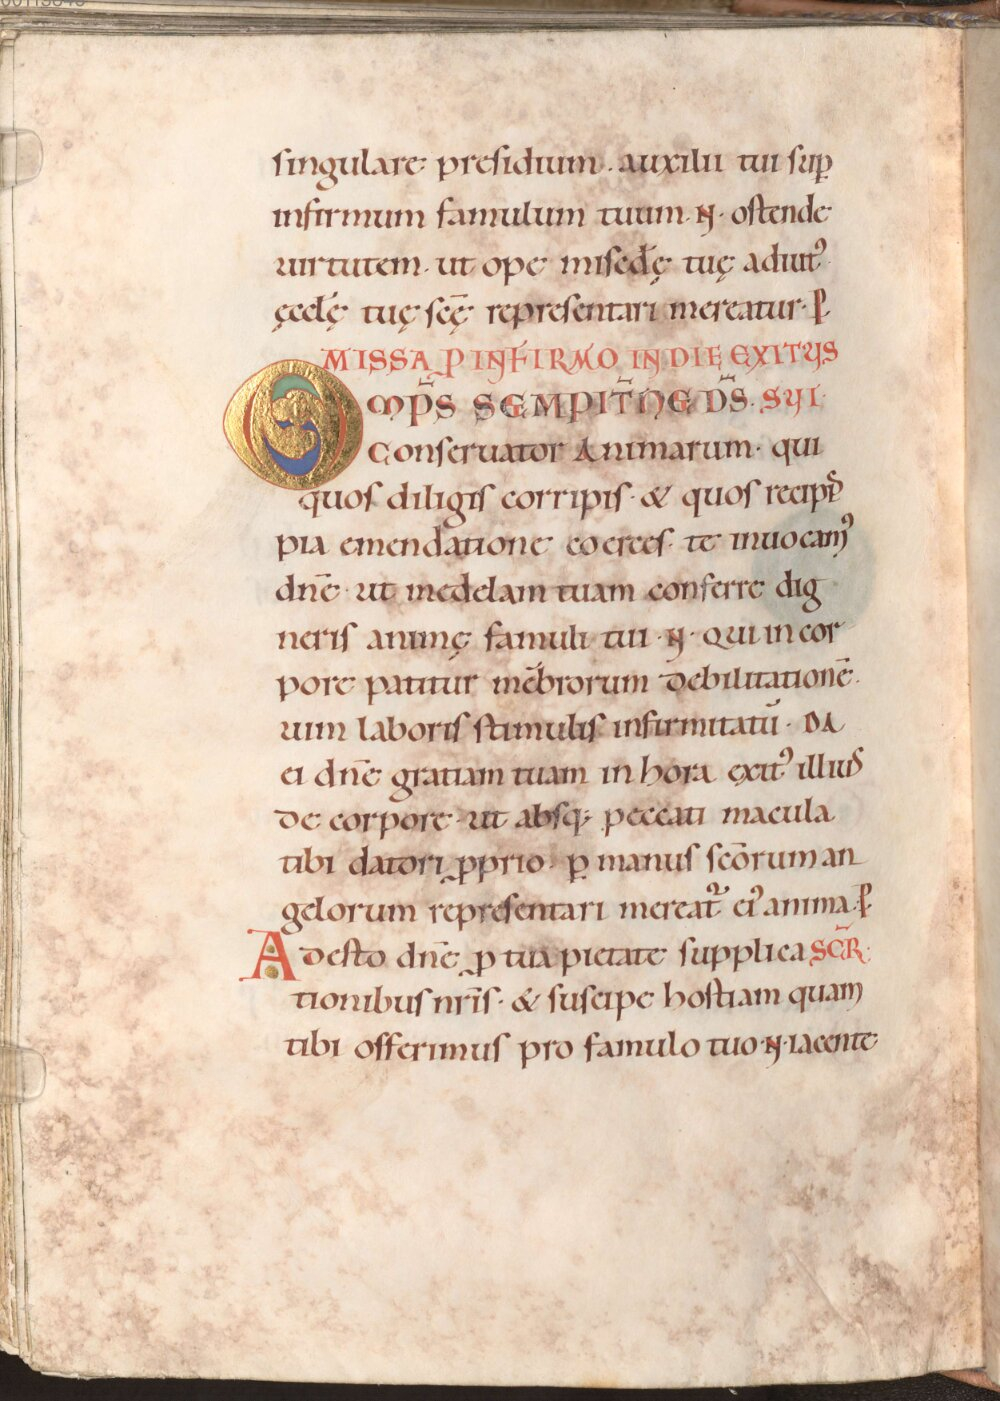 singulare presidium. auxilii tui sup̄
infirmum famulum tuum. N. ostende
uirtutem. ut ope misc̄dę tuę adiut᾽
ęccłę tuę scę̄ representari mereatur. P
MISSA P INFIRMO IN DIE EXITUS
OMP̄S SEMPIT̄NE D̄S. SUI
Conseruator Animarum. qui
quos diligis corripis. & quos recip̄
pia emendatione coerces. te inuocam᾽
dn̄e ut medelam tuam conferre dig
neris animę famuli tui. N. Qui in cor
pore patitur mēbrorum debilitationē.
uim laboris stimulis infirmitatū. DA
ei dn̄e gratiam tuam in hora exit᾽ illius
de corpore. ut absq; peccati macula
tibi datori ꝓprio. ꝑ manus scōrum an
gelorum representari mereat᷑ ei᾽ anima. P
Adesto dn̄e ꝓ tua pietate supplica SECR̄
tionibus nr̄is. & suscipe hostiam quam
tibi offerimus pro famulo tuo. N. iacente